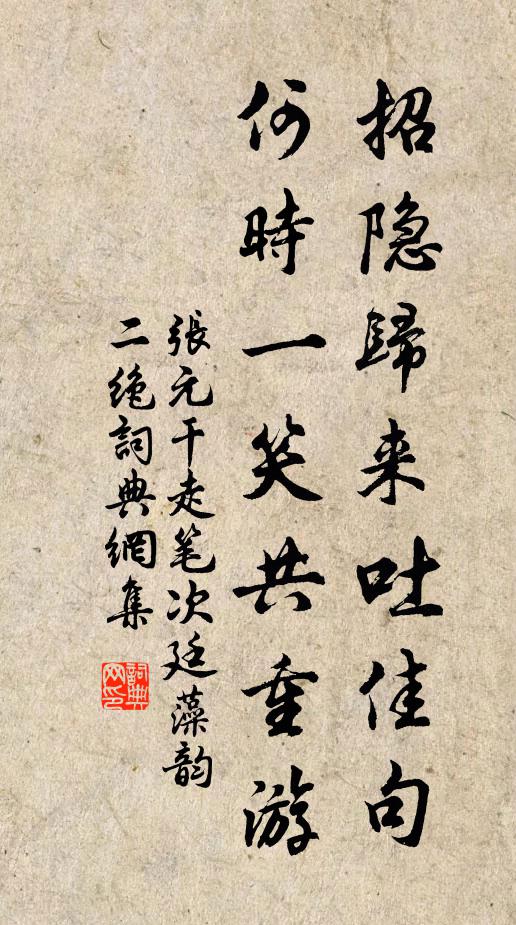 招隐歸来吐佳句
何時一笑共重游
張元干走笔次廷藻韵
二绝詞典網集
詞典
网印